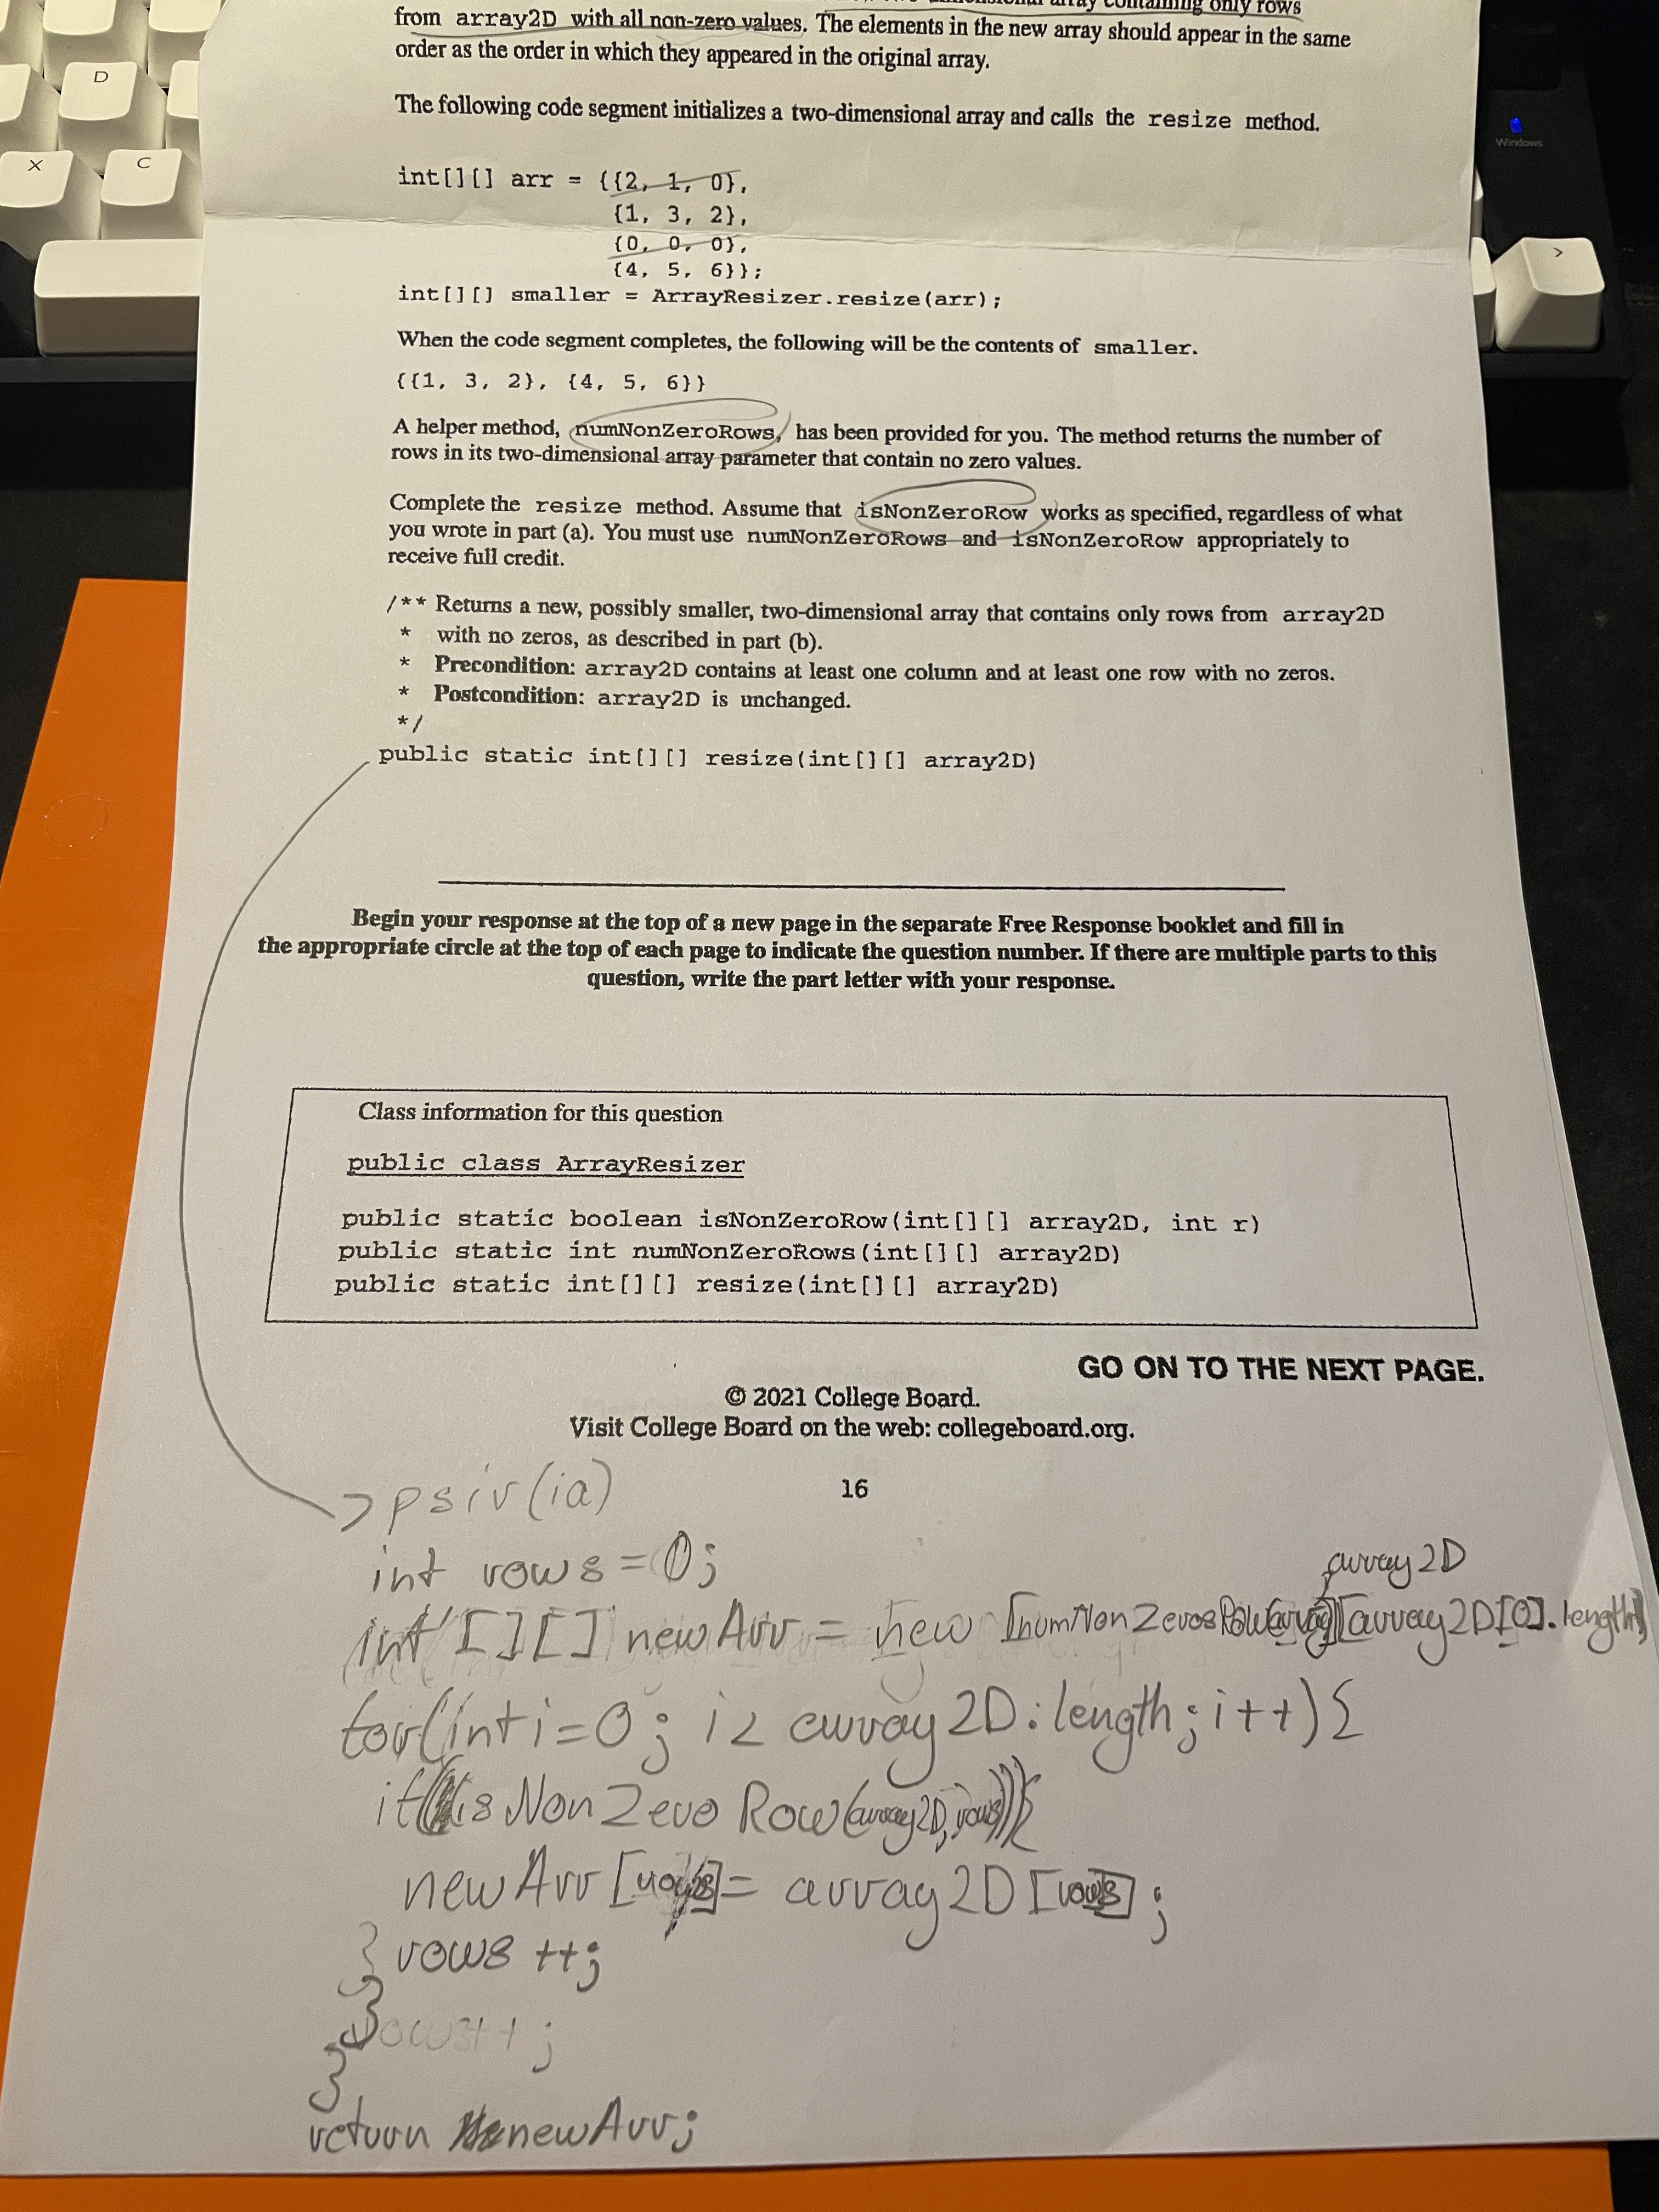 D
X
C
>
Windows
containing only rows
from array2D with all non-zero values. The elements in the new array should appear in the same
order as the order in which they appeared in the original array.
The following code segment initializes a two-dimensional array and calls the resize method.
int[][] arr = {{2, 1, 0},
{1, 3, 2},
{0, 0, 0},
{4, 5, 6}};
int[][] smaller = ArrayResizer.resize(arr);
When the code segment completes, the following will be the contents of smaller.
{{1, 3, 2}, {4, 5, 6}}
A helper method, numNonZeroRows, has been provided for you. The method returns the number of
rows in its two-dimensional array parameter that contain no zero values.
Complete the resize method. Assume that isNonZeroRow works as specified, regardless of what
you wrote in part (a). You must use numNonZeroRows and isNonZeroRow appropriately to
receive full credit.
/** Returns a new, possibly smaller, two-dimensional array that contains only rows from array2D
* with no zeros, as described in part (b).
* Precondition: array2D contains at least one column and at least one row with no zeros.
* Postcondition: array2D is unchanged.
*/
public static int[][] resize(int[][] array2D)
Begin your response at the top of a new page in the separate Free Response booklet and fill in
the appropriate circle at the top of each page to indicate the question number. If there are multiple parts to this
question, write the part letter with your response.
Class information for this question
public class ArrayResizer
public static boolean isNonZeroRow(int[][] array2D, int r)
public static int numNonZeroRows(int[][] array2D)
public static int[][] resize(int[][] array2D)
GO ON TO THE NEXT PAGE.
© 2021 College Board.
Visit College Board on the web: collegeboard.org.
16
psir(ia)
int rows = 0;
array2D
int [][] newArr = new [numNonZerosRow(array)][array2D[0].length]
for(int i=0; i < array2D.length; i++){
if((isNonZeroRow(array2D, rows))){
newArr[rows] = array2D[rows];
} rows ++;
}
rows++;
}
return newArr;